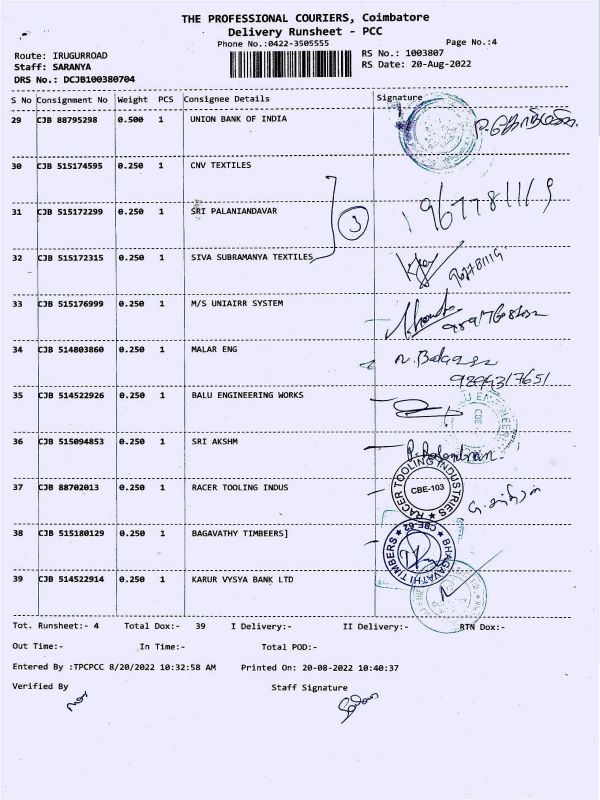 THE PROFESSIONAL COURIERS, Coimbatore
Delivery Runsheet - PCC
Phone No.:0422-3505555
Page No.:4
Route: IRUGURROAD
RS No.: 1003807
Staff: SARANYA
RS Date: 20-Aug-2022
DRS No.: DCJB100380704
S No Consignment No Weight PCS Consignee Details Signature
29 CJB 88795298 0.500 1 UNION BANK OF INDIA
30 CJB 515174595 0.250 1 CNV TEXTILES
31 CJB 515172299 0.250 1 SRI PALANIANDAVAR
3
32 CJB 515172315 0.250 1 SIVA SUBRAMANYA TEXTILES
33 CJB 515176999 0.250 1 M/S UNIAIRR SYSTEM
34 CJB 514803860 0.250 1 MALAR ENG
35 CJB 514522926 0.250 1 BALU ENGINEERING WORKS
36 CJB 515094853 0.250 1 SRI AKSHM
37 CJB 88702013 0.250 1 RACER TOOLING INDUS
RACER TOOLING INDUSTRIES ★ CBE-103 ★
38 CJB 515180129 0.250 1 BAGAVATHY TIMBEERS]
BHAGAVATHI TIMBERS ★ CBE-62 ★
39 CJB 514522914 0.250 1 KARUR VYSYA BANK LTD
Tot. Runsheet:- 4 Total Dox:- 39 I Delivery:- II Delivery:- RTN Dox:-
Out Time:- In Time:- Total POD:-
Entered By :TPCPCC 8/20/2022 10:32:58 AM Printed On: 20-08-2022 10:40:37
Verified By Staff Signature